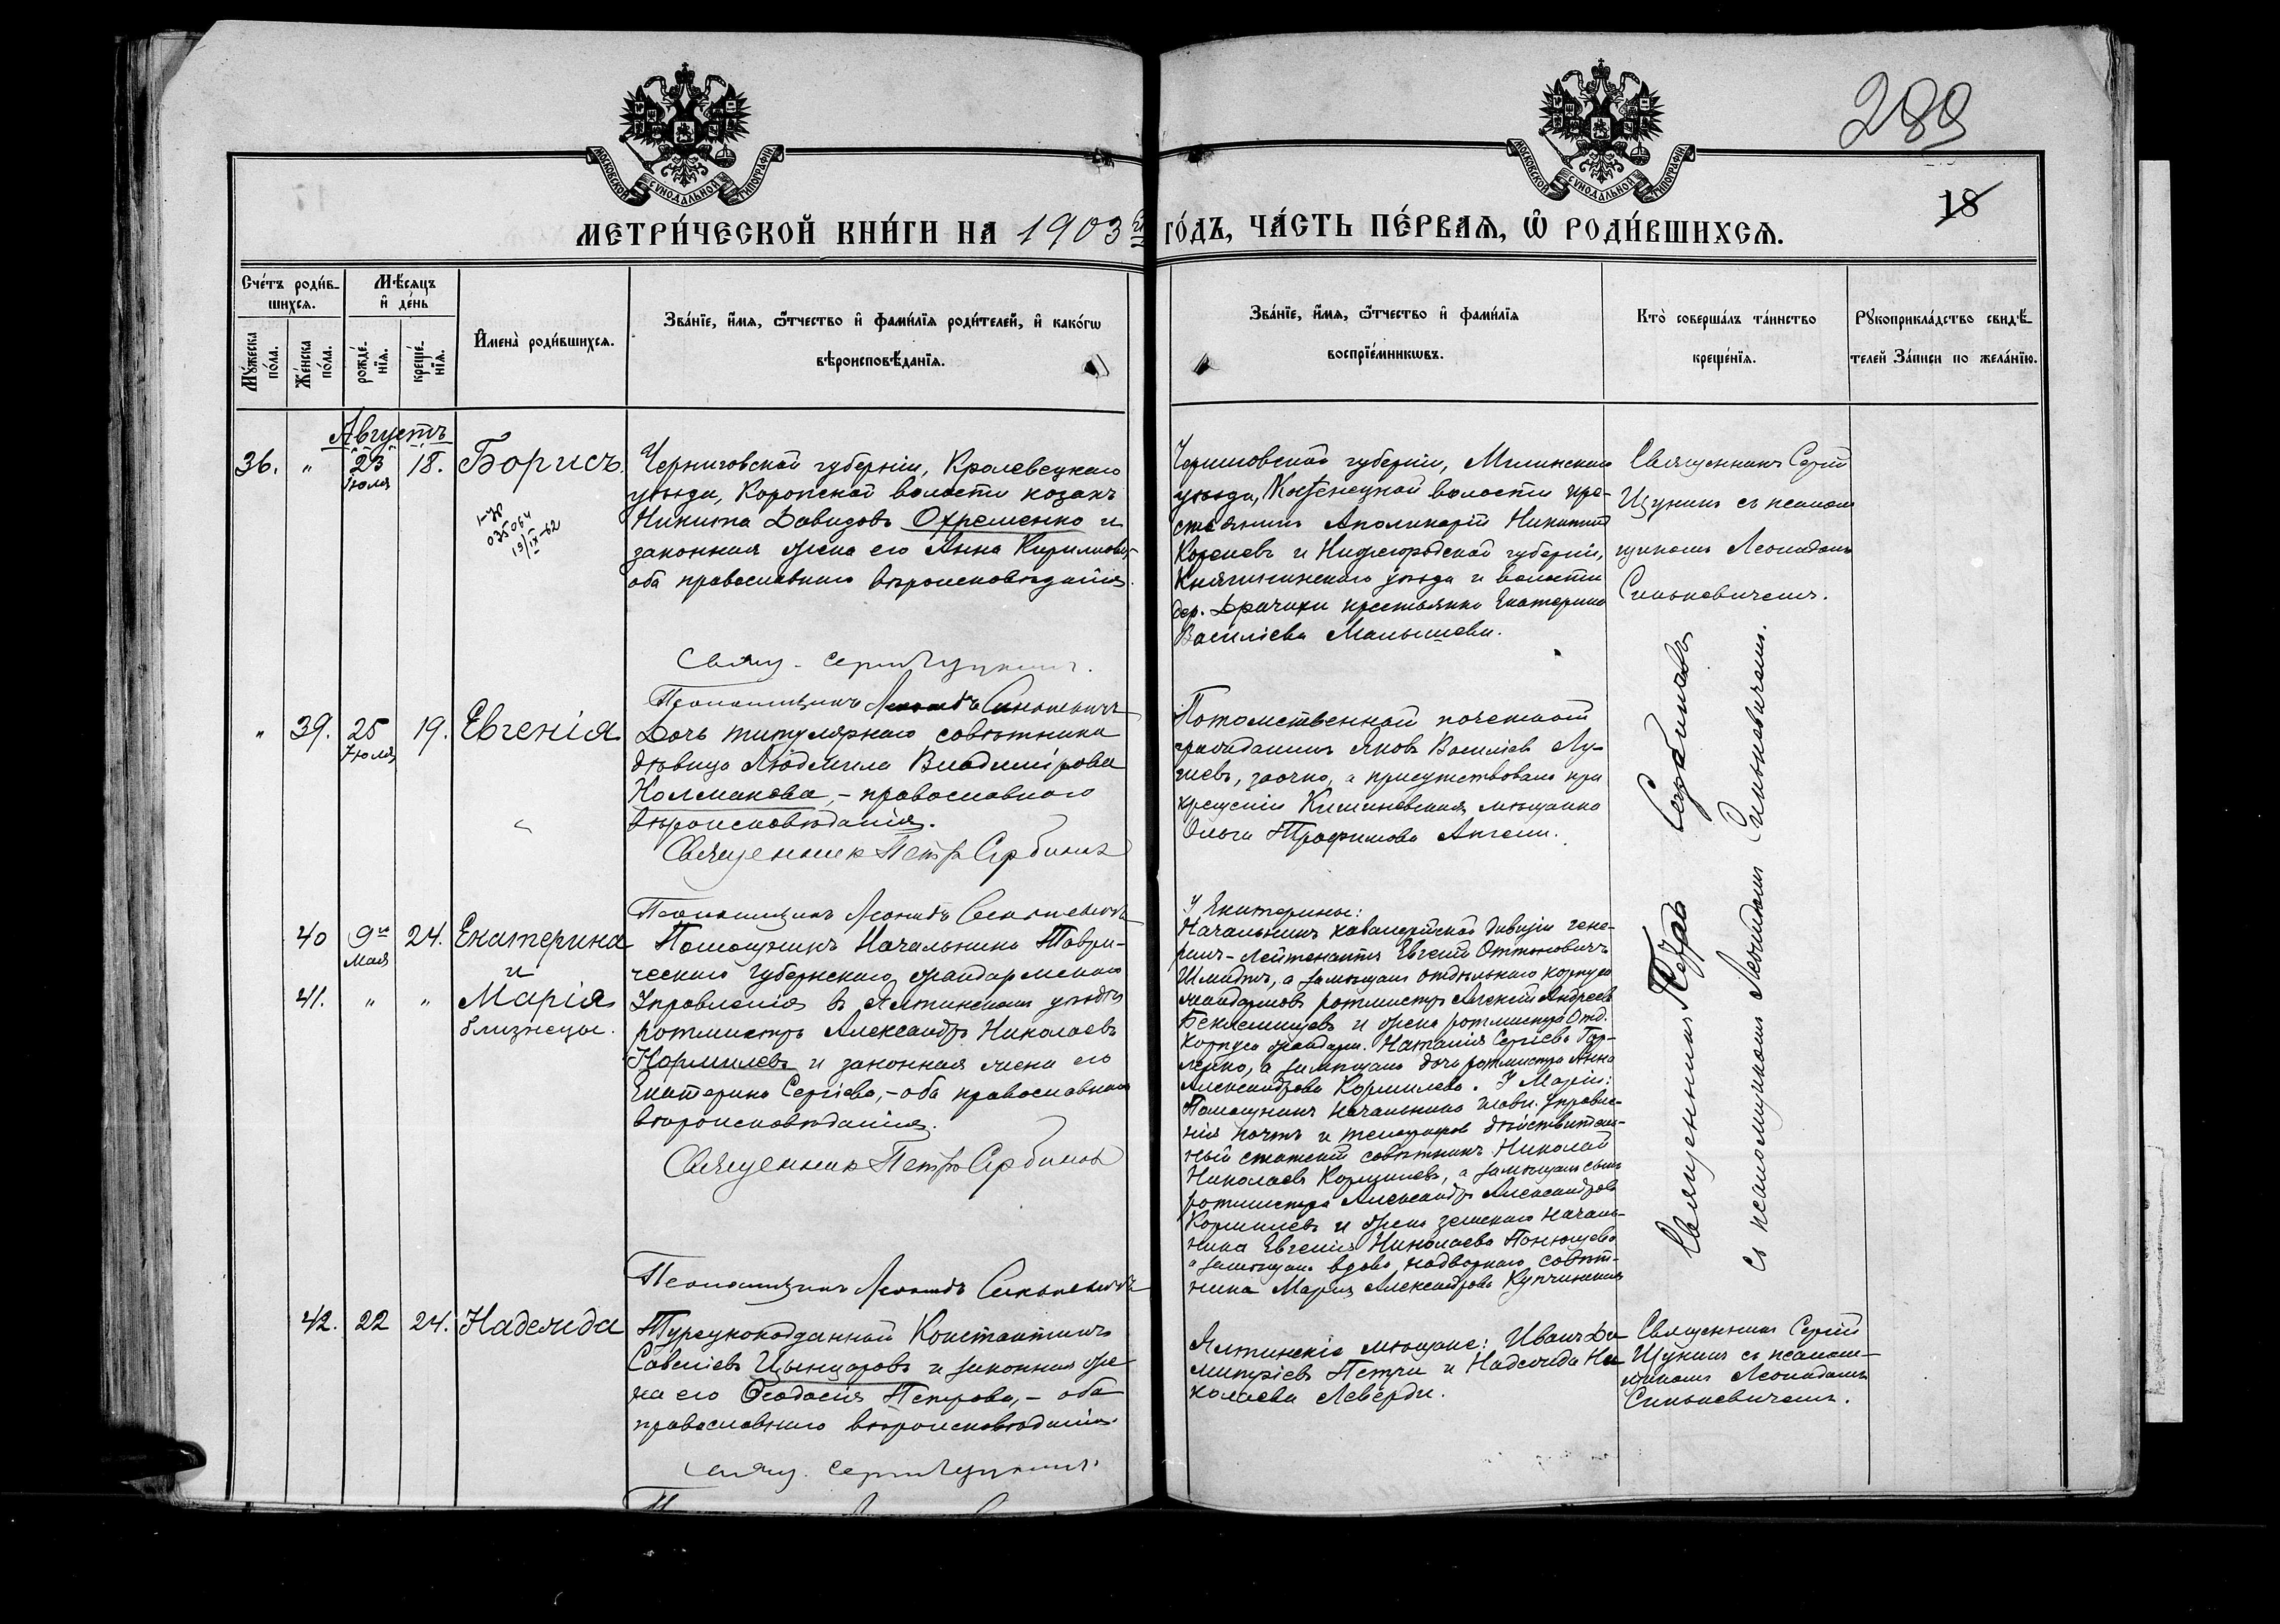 289
18
МОСКОВСКОЙ СѴНОДАЛЬНОЙ ТИПОГРАФІИ
МОСКОВСКОЙ СѴНОДАЛЬНОЙ ТИПОГРАФІИ
МЕТРИ́ЧЕСКОЙ КНИ́ГИ НА 1903 й ГО́ДЪ, ЧА́СТЬ ПЕ́РВАѦ, Ѡ РОДИ́ВШИХСѦ.
Сче́тъ роди́вшихсѧ.
Мꙋ́жеска по́ла.
Же́нска по́ла.
Мѣ́сѧцъ и де́нь
рожде́нїѧ.
креще́нїѧ.
И҆мена̀ роди́вшихсѧ.
Зва́нїе, и҆́мѧ, ѻ҆́тчество и҆ фами́лїѧ роди́телей, и҆ како́гѡ
вѣроисповѣ́данїѧ.
Зва́нїе, и҆́мѧ, ѻ҆́тчество и҆ фами́лїѧ
воспрїе́мникѡвъ.
Кто̀ соверша́лъ та́инство
креще́нїѧ.
Рꙋкоприкла́дство свидѣ́-
телей за́писи по жела́нїю.
Августъ
36. " 23 Іюля 18. Борисъ.
035064
19/IX-62
Черниговской губерніи, Кролевецкаго
уѣзда, Коропской волости козакъ
Никита Давидовъ Охременко и
законная жена его Анна Кирилловая
оба православнаго вѣроисповѣданія.
Свящ. Сергій Щукинъ.
Псаломщикъ Леонидъ Синькевичъ
Черниговской губерніи, Мглинскаго
уѣзда, волости кре-
стьянинъ Аполинарій Никитинъ
Кореневъ и Нижегородской губерніи,
Княгининскаго уѣзда и волости
дер. Драчихи крестьянка Екатерина
Василіева Малышева.
Священникъ Сергій
Щукинъ съ псалом-
щикомъ Леонидомъ
Синькевичемъ.
" 39. 25 Іюля 19. Евгенія
Дочь титулярнаго совѣтника
дѣвица Людмила Владимірова
Колмакова, - православнаго
вѣроисповѣданія.
Священникъ Петръ Сербиновъ
Псаломщикъ Леонидъ Синькевичъ
Потомственный почетный
гражданинъ Яковъ Василіевъ Лу-
невъ, заочно, а присутствовала при
крещеніи Кишиневская мѣщанка
Ольга Трофимова Ангели.
40 9го Мая 24. Екатерина
и
41. " " Марія
близнецы.
Помощникъ Начальника Таври-
ческаго Губернскаго жандармскаго
Управленія въ Ялтинскомъ уѣздѣ
ротмистръ Александръ Николаевъ
Кормилевъ и законная жена его
Екатерина Сергіева, - оба православнаго
вѣроисповѣданія.
Священникъ Петръ Сербиновъ
Псаломщикъ Леонидъ Синькевичъ
У Екатерины:
Начальникъ кавалерійской дивизіи гене-
ралъ-Лейтенантъ Евгеній Оттоновичъ
Шмидтъ, а замѣщалъ отдѣльнаго корпуса
жандармовъ ротмистръ Алексѣй Андреевъ
Беклемишевъ и жена ротмистра Отд.
Корпуса жандарм. Наталія Сергіева Гор-
ленко, а замѣщала дочь ротмистра Анна
Александрова Кормилева. У Маріи:
Помощникъ начальника главн. управле-
нія почтъ и телеграфовъ дѣйствитель-
ный статскій совѣтникъ Николай
Николаевъ Кормилевъ, а замѣщалъ сынъ
ротмистра Александръ Александровъ
Кормилевъ и жена земскаго началь-
ника Евгенія Николаева Понютева
а замѣщала вдова надворнаго совѣт-
ника Марія Александрова Купчинская
Священникъ Петръ Сербиновъ
съ псаломщикомъ Леонидомъ Синькевичемъ.
42. 22 24. Надежда
Турецкоподданный Константинъ
Савеліевъ Цынцаровъ и законная же-
на его Ѳеодосія Петрова, - оба
православнаго вѣроисповѣданія.
Свящ. Сергій Щукинъ.
Ялтинскіе мѣщане: Иванъ Ди-
митріевъ Петри и Надежда Ни-
колаева Леверди.
Священникъ Сергій
Щукинъ съ псалом-
щикомъ Леонидомъ
Синькевичемъ.